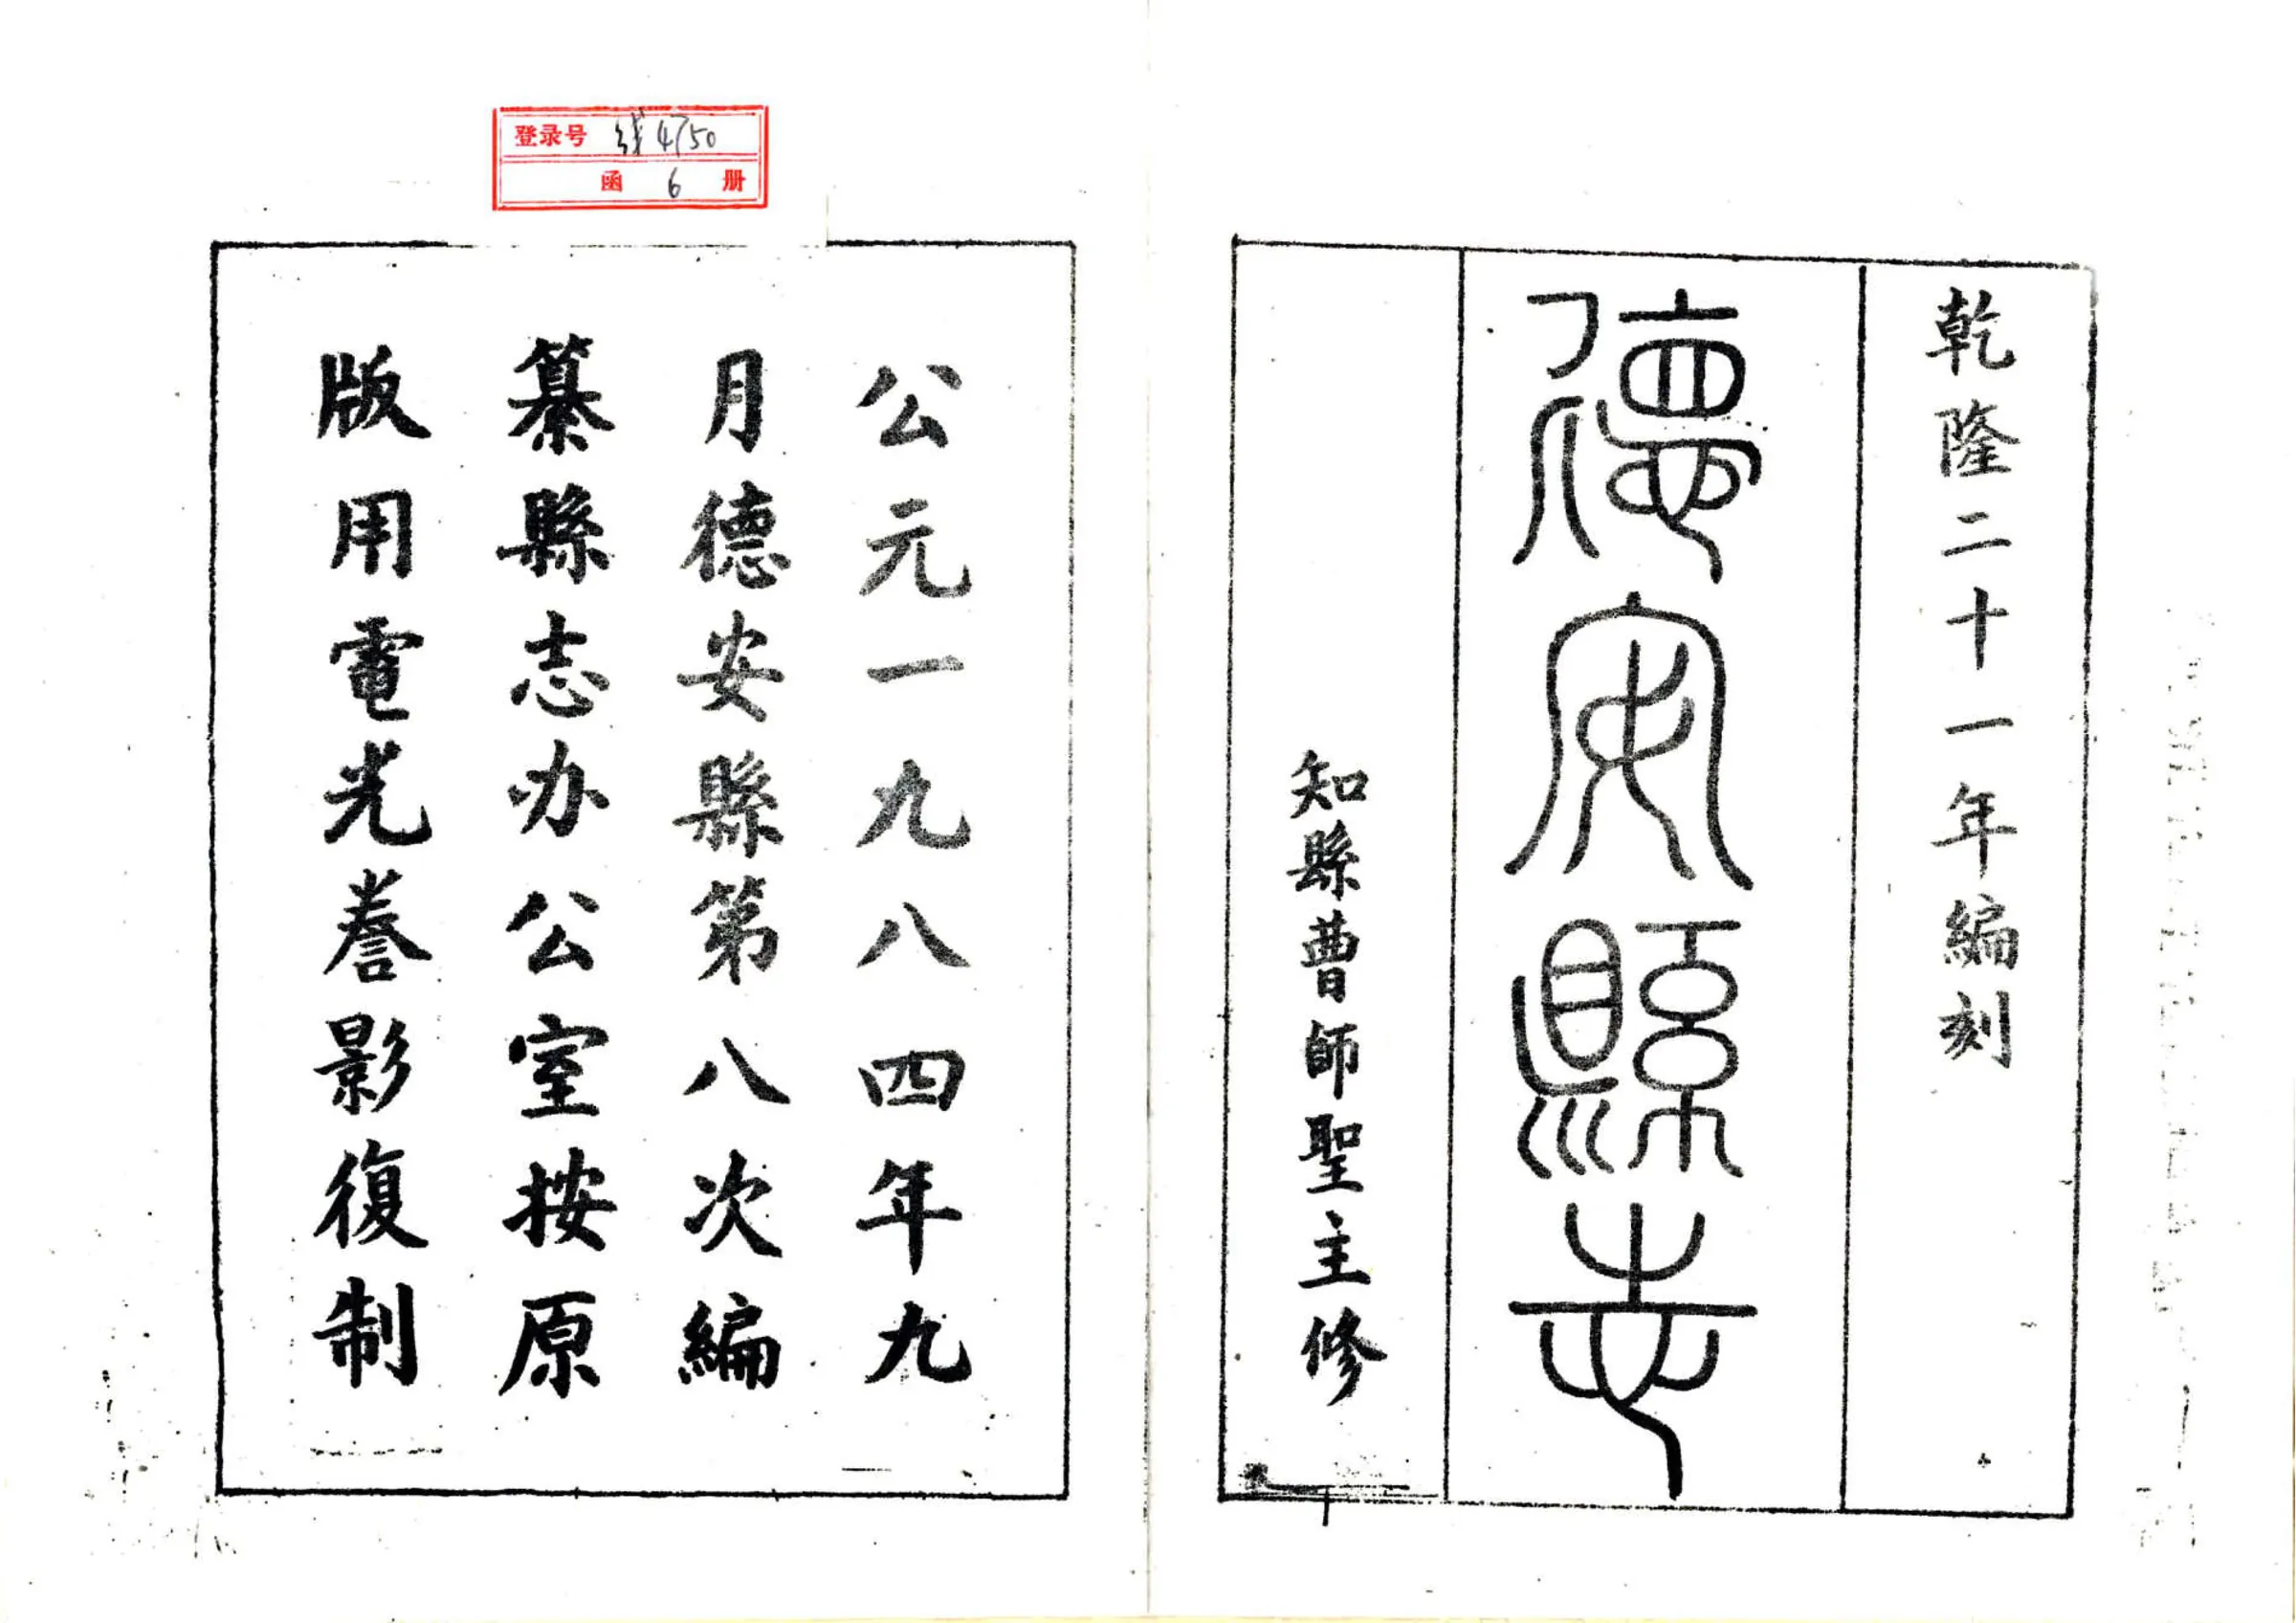 乾隆二十一年編刻
德安縣志
知縣曹師聖主修
登录号 线4750
函 6 册
公元一九八四年九
月德安縣第八次編
纂縣志办公室按原
版用電光謄影復制